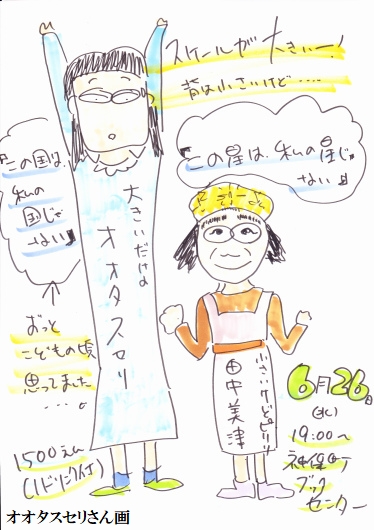 スケールが大きいー!
背は小さいけど‥‥
「この星は、私の星じゃ
ない」
「この国は、
私の
国じゃ
ない」
↑
おっと
こどもの頃
思ってました
‥‥。
大きいだけよ
オオタスセリ
小さいけどピリリ
田中美津
6月26日
(水)
19:00〜
神保町
ブック
センター
1500えん
(1ドリンク付)
オオタスセリさん画